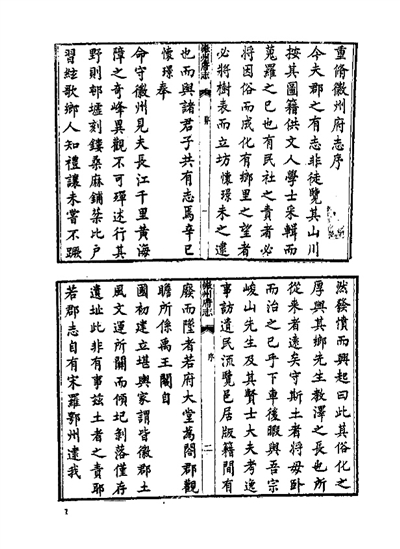 重脩徽州府志序
今夫郡之有志非徒覽其山川
按其圖籍供文人學士采輯而
蒐羅之已也有民社之責者必
將因俗而成化有鄉里之望者
必將樹表而立坊懷璟未之逮
徽州府志 序 一
也而與諸君子共有志焉辛巳
懷璟奉
命守徽州見夫長江千里黃海
障之奇峰異觀不可殫述行其
野則邨墟刻鏤桑麻鋪棻比戶
習絃歌鄉人知禮讓未嘗不蹶
然發憤而興起曰此其俗化之
厚與其鄉先生教澤之長也所
從來者遠矣守斯土者將毋卧
而治之已乎下車後暇與吾宗
峻山先生及其賢士大夫考逸
事訪遺民流覽邑居版籍間有
徽州府志 序 二
廢而墜者若府大堂為闔郡觀
瞻所係禹王閣自
國初建立堪輿家謂皆徽郡土
風文運所關而傾圮剝落僅存
遺址此非有事茲土者之責耶
若郡志自有宋羅鄂州遺我
1